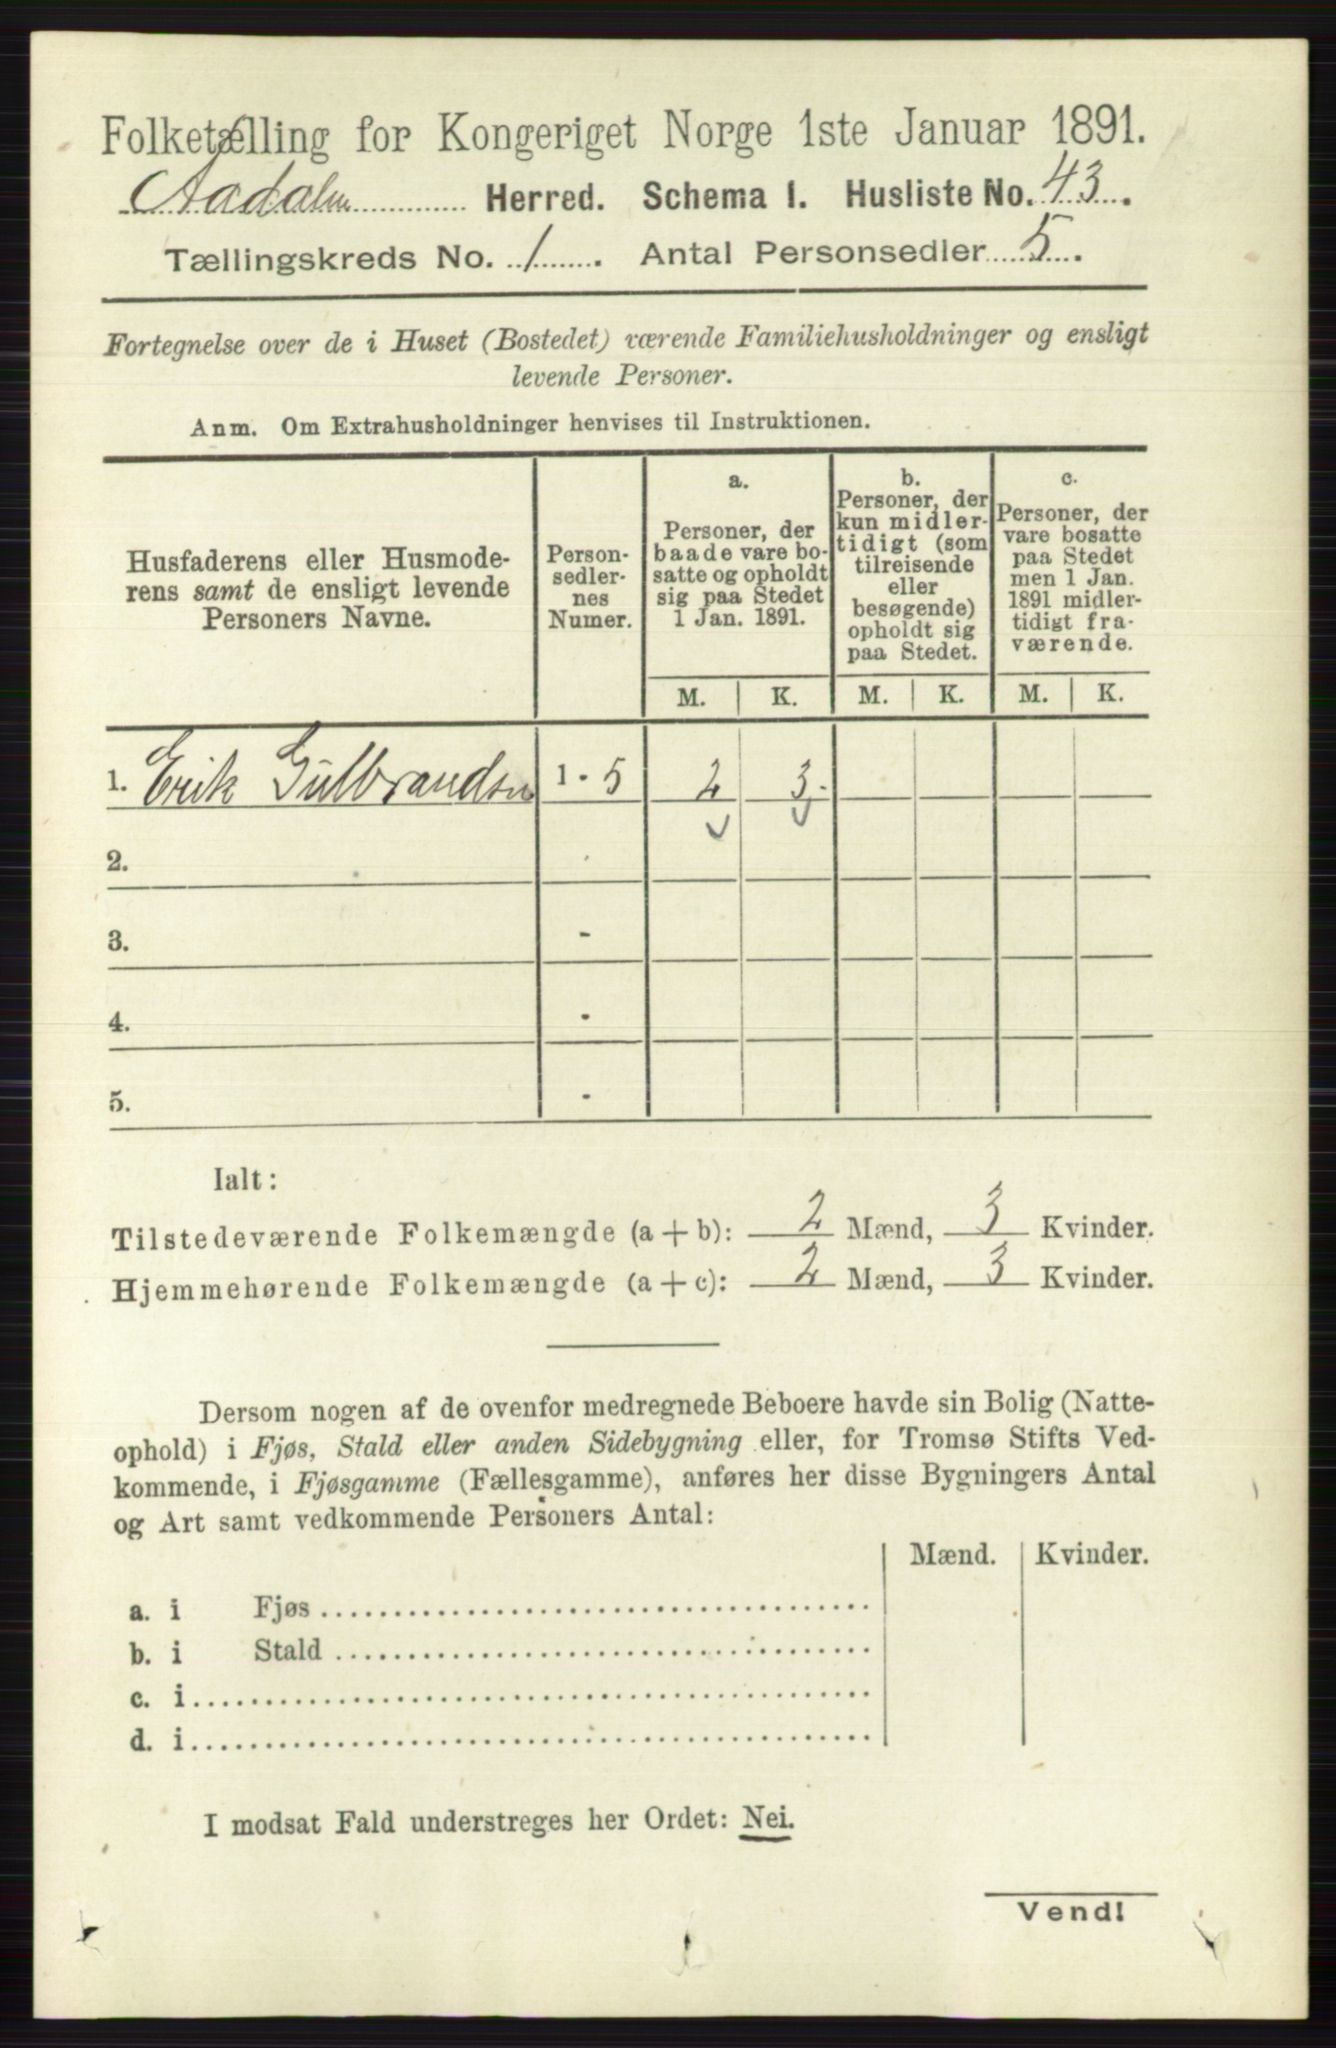 Folketælling for Kongeriget Norge 1ste Januar 1891.
Aadalen Herred. Schema I. Husliste No. 43.
Tællingskreds No. 1. Antal Personsedler 5.
Fortegnelse over de i Huset (Bostedet) værende Familiehusholdninger og ensligt
levende Personer.
Anm. Om Extrahusholdninger henvises til Instruktionen.
Husfaderens eller Husmode-
rens samt de ensligt levende
Personers Navne.
Person-
sedler-
nes
Numer.
a.
Personer, der
baade vare bo-
satte og opholdt
sig paa Stedet
1 Jan. 1891.
b.
Personer, der
kun midler-
tidigt (som
tilreisende
eller
besøgende)
opholdt sig
paa Stedet.
c.
Personer, der
vare bosatte
paa Stedet
men 1 Jan.
1891 midler-
tidigt fra-
værende.
M. K. M. K. M. K.
1. Erik Gulbrandsen 1 - 5 2 3
2.
3. -
4. -
5. -
Ialt:
Tilstedeværende Folkemængde (a + b): 2 Mænd, 3 Kvinder.
Hjemmehørende Folkemængde (a + c): 2 Mænd, 3 Kvinder.
Dersom nogen af de ovenfor medregnede Beboere havde sin Bolig (Natte-
ophold) i Fjøs, Stald eller anden Sidebygning eller, for Tromsø Stifts Ved-
kommende, i Fjøsgamme (Fællesgamme), anføres her disse Bygningers Antal
og Art samt vedkommende Personers Antal:
Mænd. Kvinder.
a. i Fjøs
b. i Stald
c. i
d. i
I modsat Fald understreges her Ordet: Nei.
Vend!